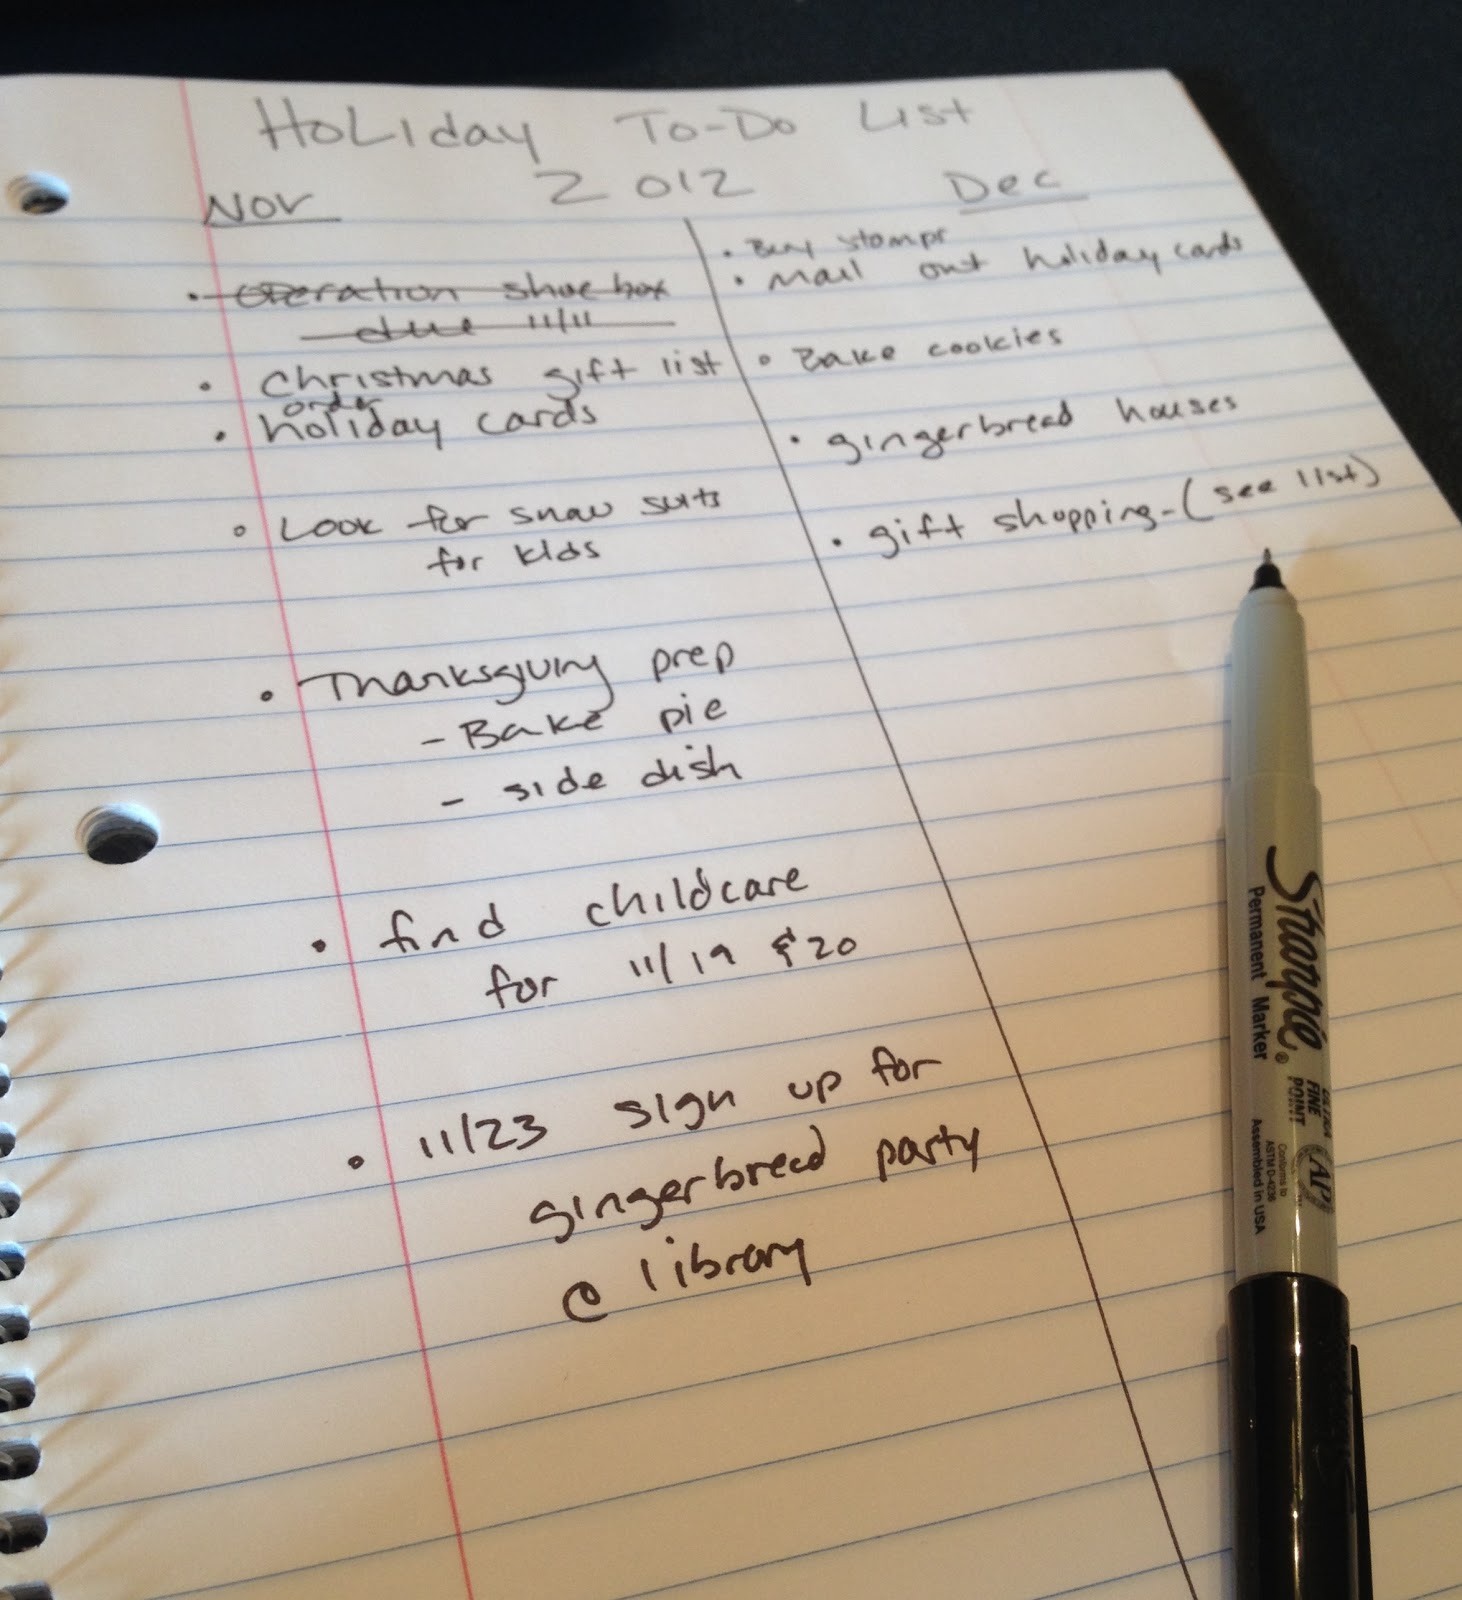 HoLiday To-Do List
2012
Nov
• Operation shoe box
due 11/11
• Christmas gift list
order
• holiday cards
• Look for snow suits
for kids
• Thanksgiving prep
- Bake pie
- side dish
• find childcare
for 11/19 & 20
• 11/23 sign up for
gingerbread party
@ library
Dec
• Buy stamps
• mail out holiday cards
• Bake cookies
• gingerbread houses
• gift shopping - (see list)
Sharpie®
Permanent Marker
ULTRA
FINE
POINT
AP
Conforms to
ASTM D-4236
Assembled in USA